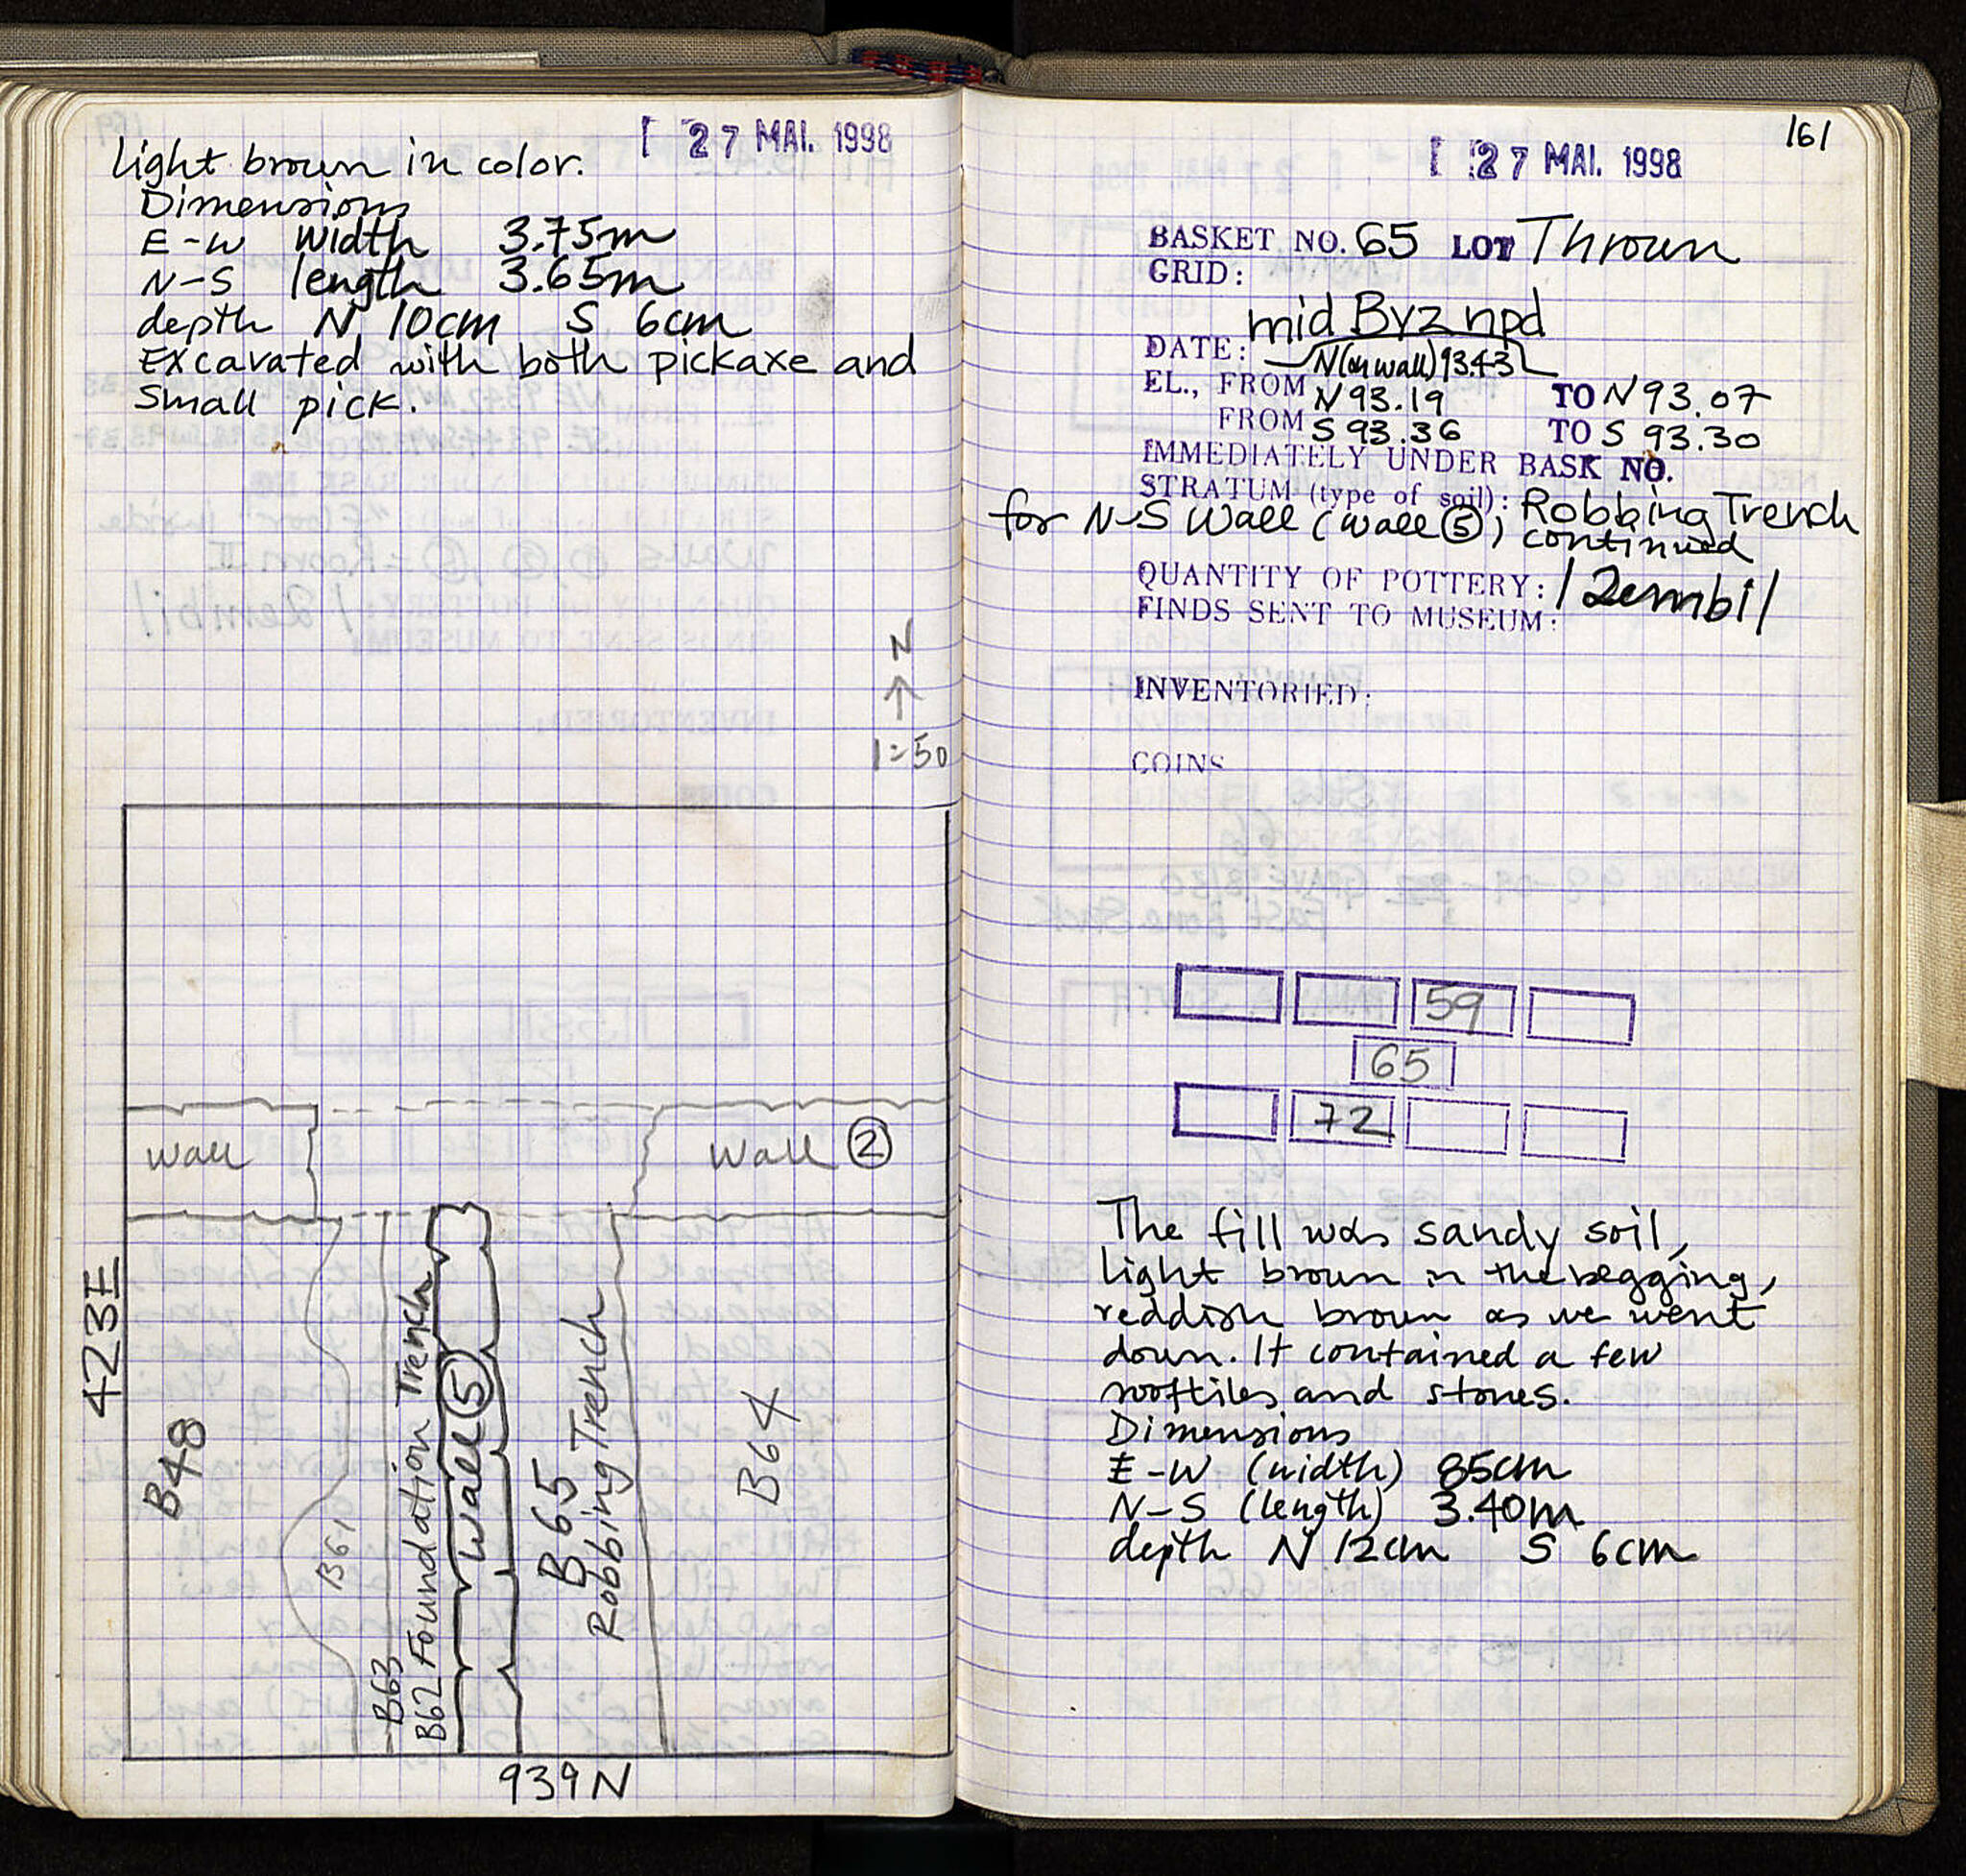 27 MAI. 1998
light brown in color.
Dimensions
E-W width 3.75m
N-S length 3.65m
depth N 10cm S 6cm
Excavated with both pickaxe and
small pick.
N
1=50
wall
wall 2
423E
B48
B61
B63
B62 Foundation Trench
Wall 5
B65
Robbing Trench
B64
939N
161
27 MAI. 1998
BASKET NO. 65 LOT Thrown
GRID:
mid Byz npd
DATE:
N(on wall) 93.43
EL., FROM N 93.19 TO N 93.07
FROM S 93.36 TO S 93.30
IMMEDIATELY UNDER BASK NO.
STRATUM (type of soil): Robbing Trench
for N-S Wall (wall 5) continued
QUANTITY OF POTTERY: 1 Zembil
FINDS SENT TO MUSEUM:
INVENTORIED:
COINS
59
65
72
The fill was sandy soil,
light brown in the begging,
reddish brown as we went
down. It contained a few
rooftiles and stones.
Dimensions
E-W (width) 85cm
N-S (length) 3.40m
depth N 12cm S 6cm